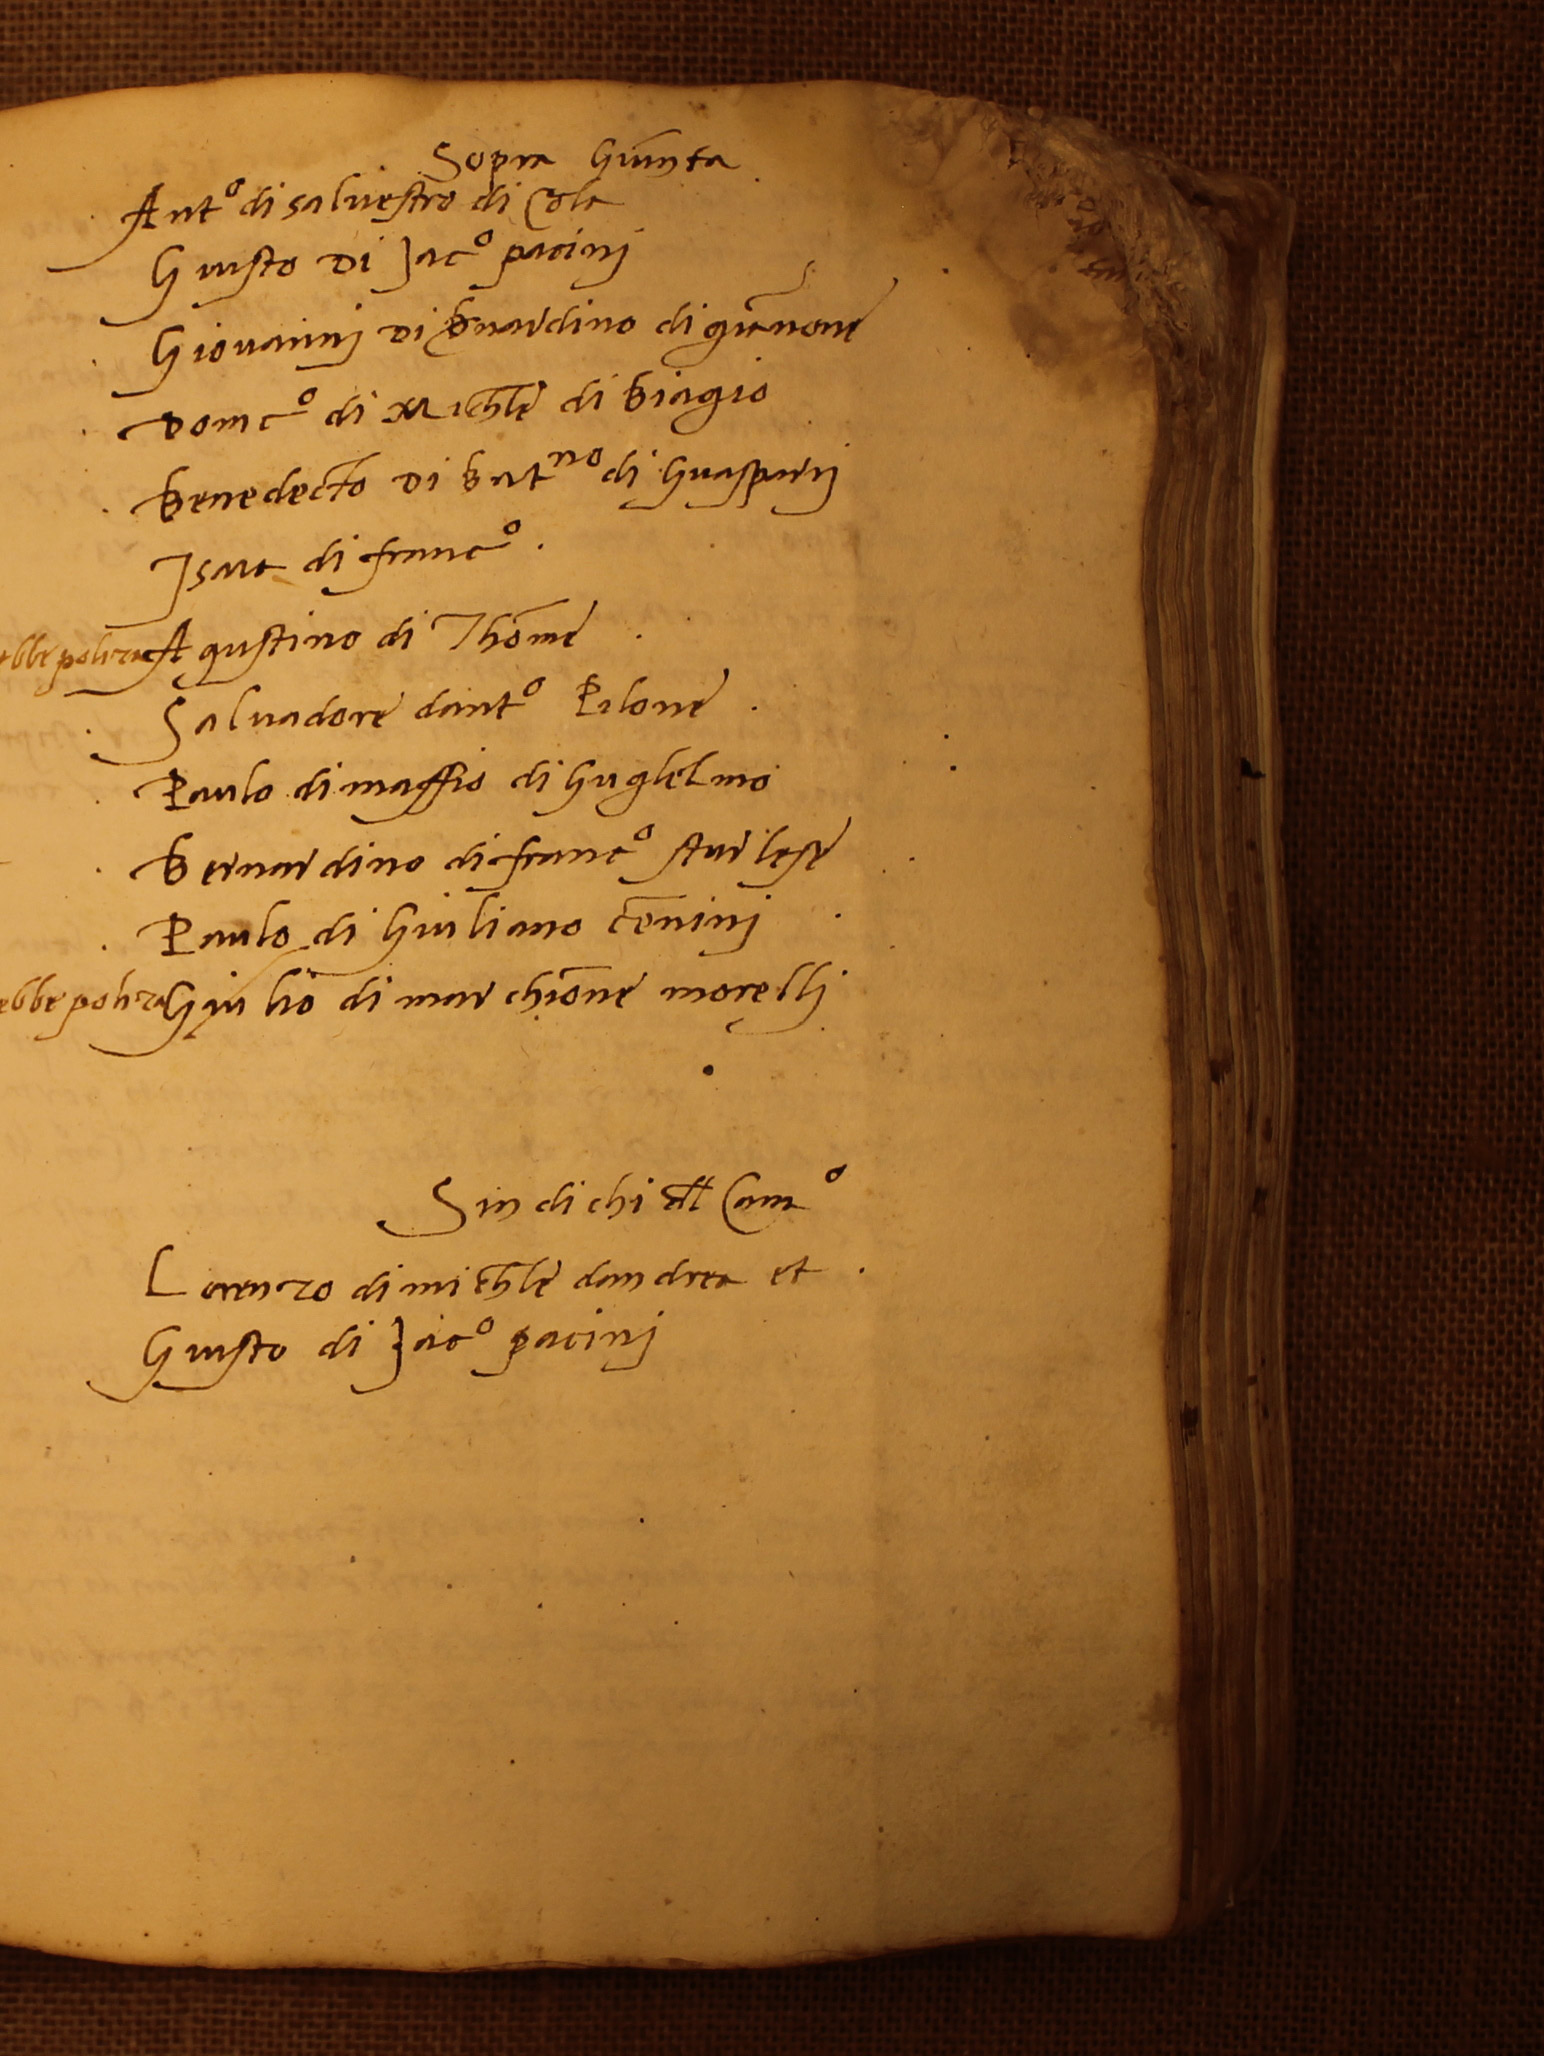 Sopra Giunta
Ant° di salvestro di Cola
Giusto di Jac° pacini
Giovanni di Bnardino di
Domc° di Michle di Biagio
Benedecto di Bat^no di Guasparri
Isac di franc°
ebbe poliza Agustino di Thome
Salvadore dant° Pilone
Paulo di maffio di Guglelmo
Bernardino di franc° starlese
Paulo di Giuliano Cenini
ebbe poliza Giulio di marchione morelli
Sindichi dll Cam°
Lorenzo di michle dandrea et
Giusto di Jac° pacini